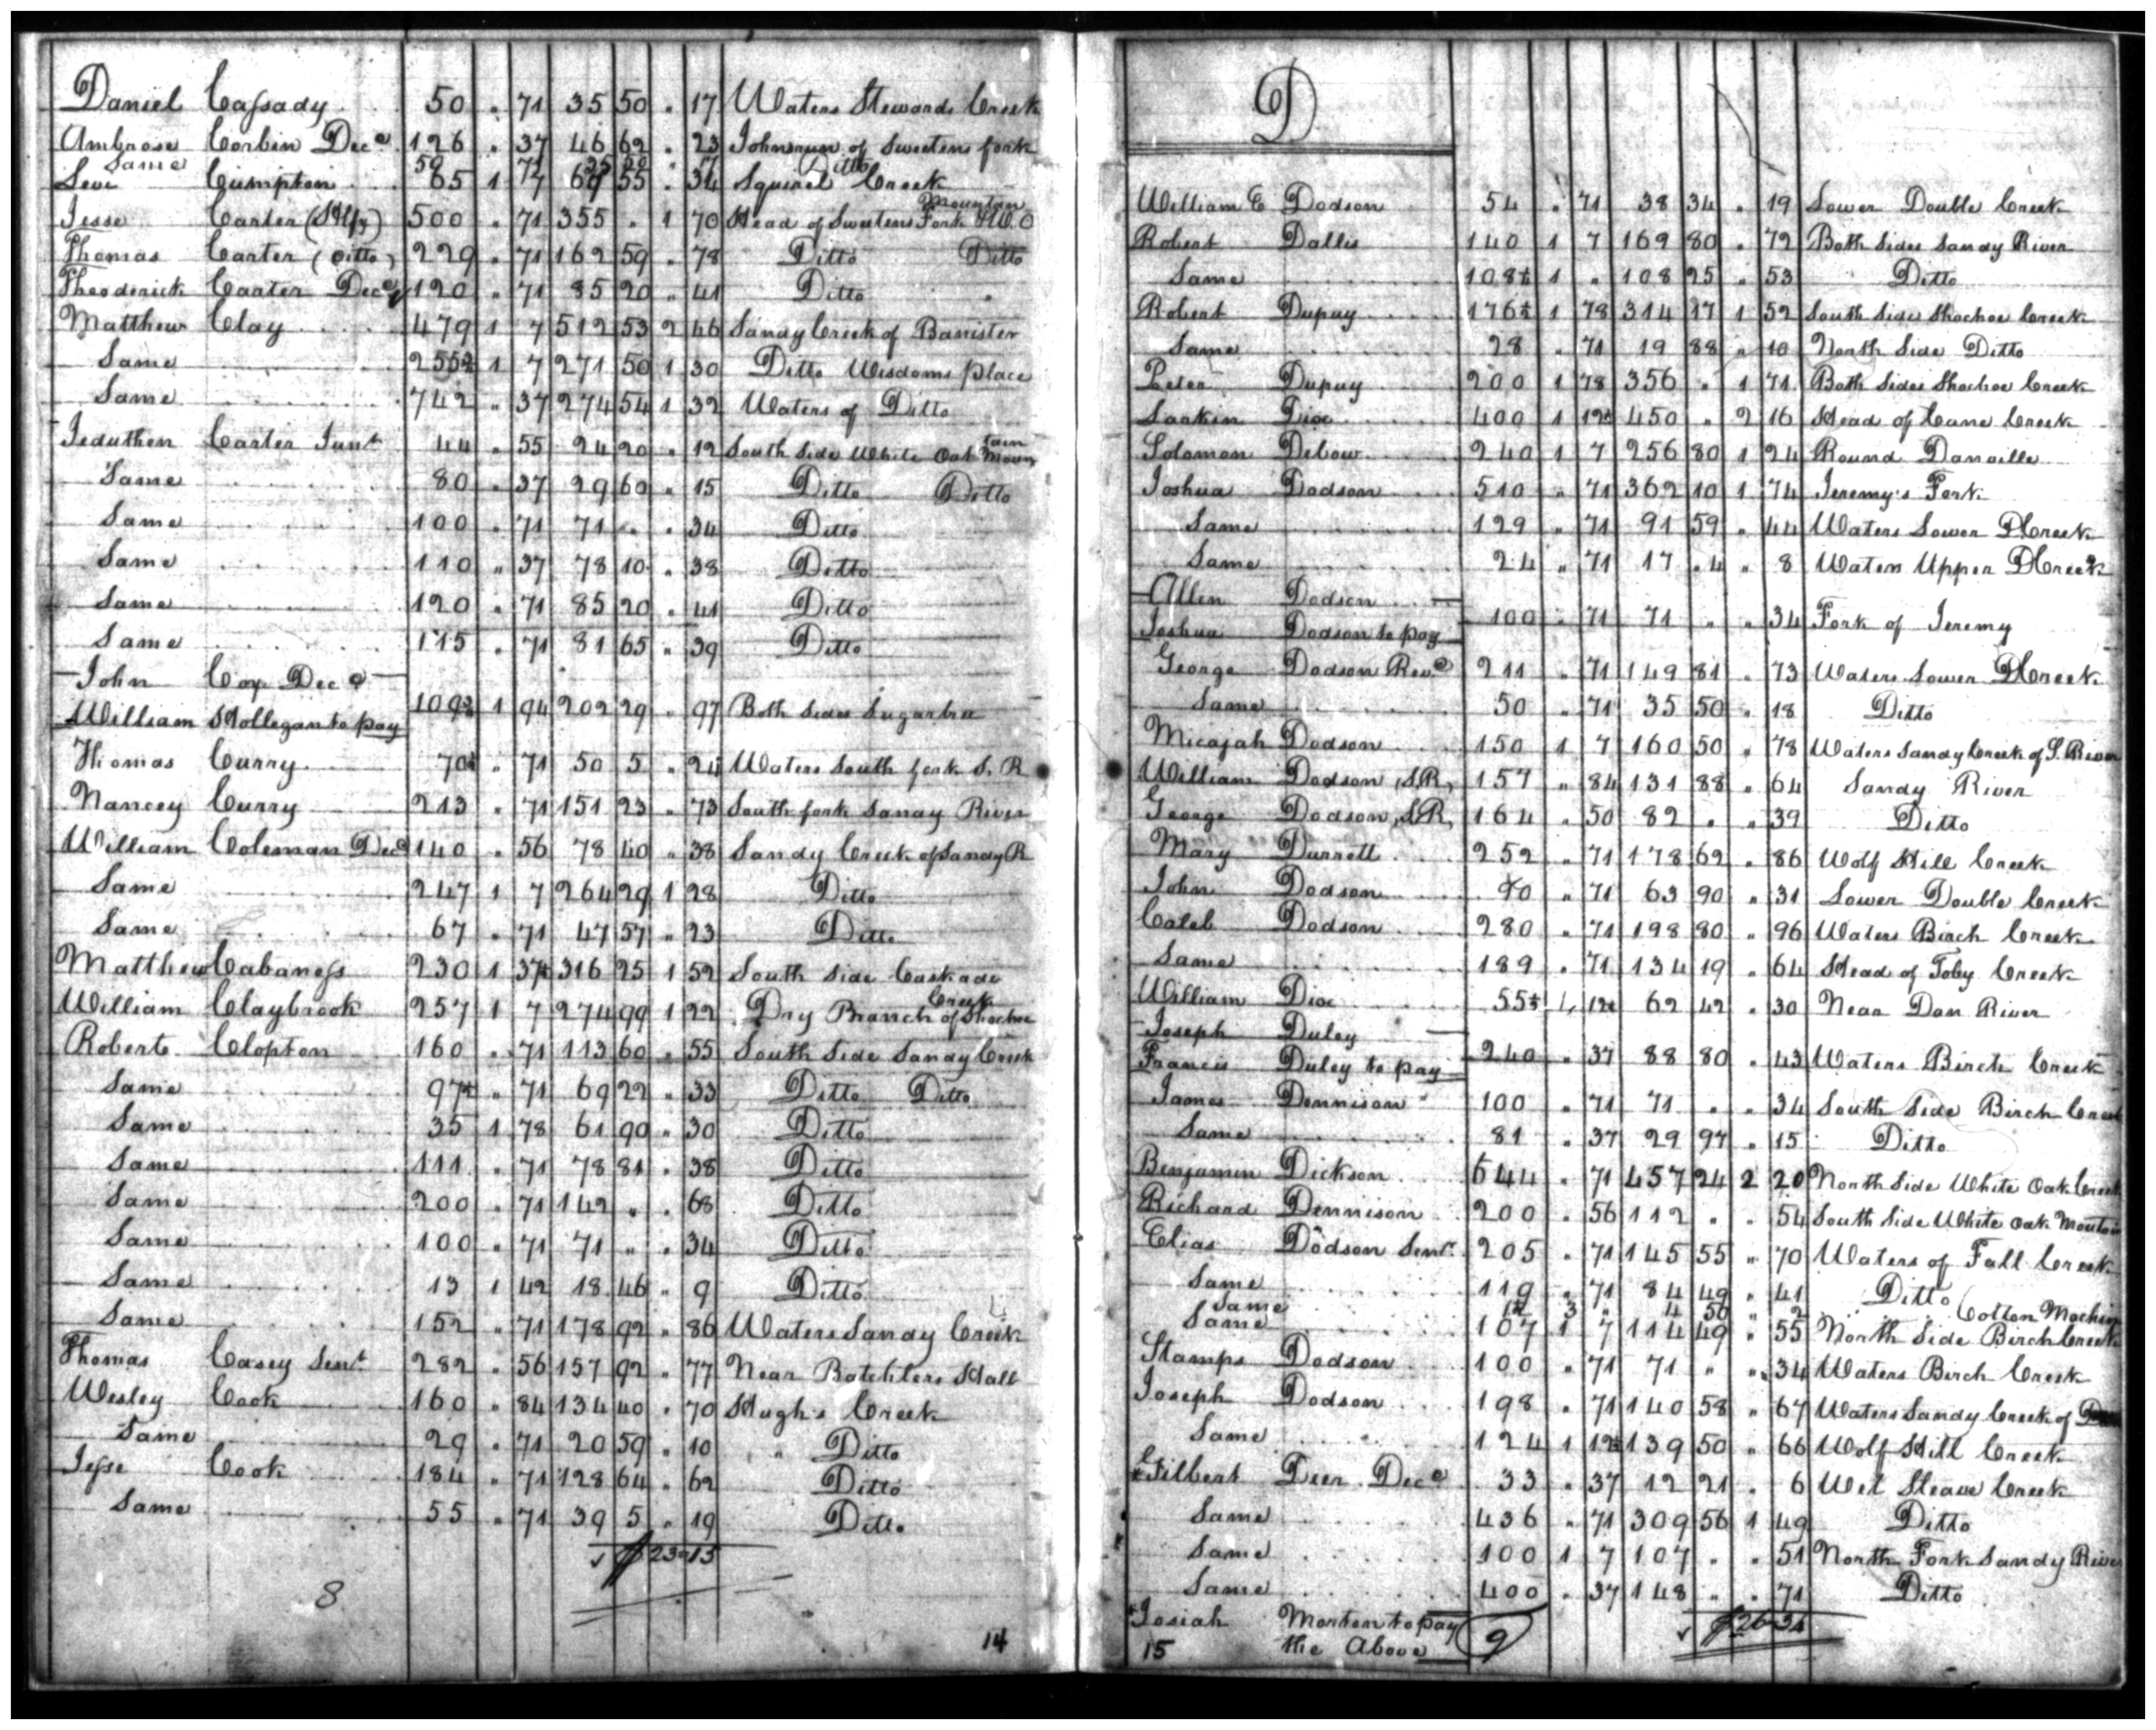 Daniel Cassady 50 " 71 35 50 " 17 Waters Stewards Creek
Ambrose Corbin Decd 126 " 37 46 62 " 23 Johnsrun of Sweetens fork
Same 50 71 35 50 " 17 Ditto
Levi Cumpton 65 1 7 69 55 " 34 Squirel Creek
Jesse Carter (Hlfx) 500 " 71 355 " 1 70 Head of Sweetens Fork W. O Mountain
Thomas Carter (Ditto) 229 " 71 162 59 " 78 Ditto Ditto
Theoderick Carter Decd 120 " 71 85 20 " 41 Ditto "
Matthew Clay 479 1 7 512 53 2 46 Sandy Creek of Banister
Same 253¾ 1 7 271 50 1 30 Ditto Wisdoms place
Same 742 " 37 274 54 1 32 Waters of Ditto
Jeduthen Carter Junr 44 " 55 24 20 " 12 South Side White Oak Mountain
Same 80 " 37 29 60 " 15 Ditto Ditto
Same 100 " 71 71 " " 34 Ditto
Same 110 " 37 78 10 " 38 Ditto
Same 120 " 71 85 20 " 41 Ditto
Same 115 " 71 81 65 " 39 Ditto
John Cox Decd
William Hollegan to pay 109¾ 1 94 202 29 " 97 Both Sides Sugartree
Thomas Curry 70½ " 71 50 5 " 24 Waters South fork S. R
Nancey Curry 213 " 71 151 23 " 73 South fork Sandy River
William Coleman Decd 140 " 56 78 40 " 38 Sandy Creek of Sandy R
Same 247 1 7 264 29 1 28 Ditto
Same 67 " 71 47 57 " 23 Ditto
Matthew Cabaness 230 1 37½ 316 25 1 52 South Side Caskade
William Claybrook 257 1 7 274 99 1 22 Dry Branch of Shochoe Creek
Roberts Clopton 160 " 71 113 60 " 55 South Side Sandy Creek
Same 97½ " 71 69 22 " 33 Ditto Ditto
Same 35 1 78 61 90 " 30 Ditto
Same 111 " 71 78 81 " 38 Ditto
Same 200 " 71 142 " " 68 Ditto
Same 100 " 71 71 " " 34 Ditto
Same 13 1 42 18 46 " 9 Ditto
Same 152 " 71 178 92 " 86 Waters Sandy Creek
Thomas Casey Senr 282 " 56 157 92 " 77 Near Batchlers Hall
Wesley Cook 160 " 84 134 40 " 70 Hugh's Creek
Same 29 " 71 20 59 " 10 " Ditto
Jesse Cook 184 " 71 128 64 " 62 Ditto
Same 55 " 71 39 5 " 19 Ditto
$ 23-15
8
14
D
William E Dodson 54 " 71 38 34 " 19 Lower Double Creek
Robert Dallis 140 1 7 169 80 " 72 Both Sides Sandy River
Same 108¼ 1 " 108 25 " 53 Ditto
Robert Dupuy 176½ 1 78 314 17 1 52 South Side Shochoe Creek
Same 28 " 71 19 88 " 10 North Side Ditto
Peter Dupuy 200 1 78 356 " 1 71 Both Sides Shochoe Creek
Larkin Dix 400 1 12½ 450 " 2 16 Head of Cane Creek
Solomon Debow 240 1 7 256 80 1 24 Round Danville
Joshua Dodson 510 " 71 362 10 1 74 Jeremy's Fork
Same 129 " 71 91 59 " 44 Waters Lower D Creek
Same 24 " 71 17 " 4 " 8 Waters Upper D Creek
Allen Dodson
Joshua Dodson to pay 100 " 71 71 " " 34 Fork of Jeremy
George Dodson Revd 211 " 71 149 81 " 73 Waters Lower D Creek
Same 50 " 71 35 50 " 18 Ditto
Micajah Dodson 150 1 7 160 50 " 78 Waters Sandy Creek of S. River
William Dodson (S.R) 157 " 84 131 88 " 64 Sandy River
George Dodson (S.R) 164 " 50 82 " " 39 Ditto
Mary Durrett 252 " 71 178 62 " 86 Wolf Hill Creek
John Dodson 90 " 71 63 90 " 31 Lower Double Creek
Caleb Dodson 280 " 71 198 80 " 96 Waters Birch Creek
Same 189 " 71 134 19 " 64 Head of Toby Creek
William Dix 55½ 1 12½ 62 42 " 30 Near Dan River
Joseph Duley
Francis Duley to pay 240 " 37 88 80 " 43 Waters Birch Creek
James Dennison 100 " 71 71 " " 34 South Side Birch Creek
Same 81 " 37 29 97 " 15 Ditto
Benjamin Dickson 644 " 71 457 24 2 20 North Side White Oak Creek
Richard Dennison 200 " 56 112 " " 54 South Side White Oak Mountain
Elias Dodson Senr 205 " 71 145 55 " 70 Waters of Fall Creek
Same 119 " 71 84 49 " 41 Ditto
Same 1½ 3 " 4 50 " 2 Cotton Machine
Same 107 1 7 114 49 " 55 North Side Birch Creek
Stamps Dodson 100 " 71 71 " " 34 Waters Birch Creek
Joseph Dodson 198 " 71 140 58 " 67 Waters Sandy Creek of
Same 124 1 12½ 139 50 " 66 Wolf Hill Creek
Gilbert Deer Decd 33 " 37 12 21 " 6 Wet Sleave Creek
Same 436 " 71 309 56 1 49 Ditto
Same 100 1 7 107 " " 51 North Fork Sandy River
Same 400 " 37 148 " " 71 Ditto
Josiah Morton to pay
the Above
$26-34
9
15